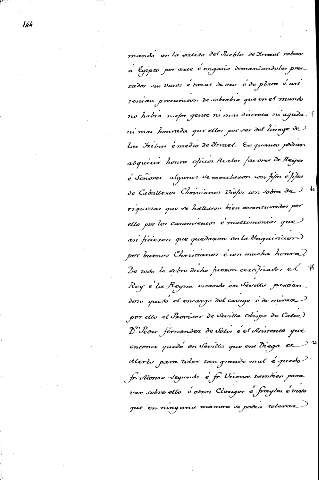 164
mandó en la salida del Pueblo de Israel robase
a Egypto por arte é engaño demandandoles pres-
tados sus vasos é tazas de oro é de plata é assi
tenian presuncion de soberbia que en el mundo
no habia mejor gente ni mas discreta ni aguda
ni mas honrada que ellos por ser del linage de
los Tribus é medio de Israel. En quanto podian
adquirir honra oficios Reales favores de Reyes
é Señores algunos se mezclaron con fijos é fijas
de Caballeros Christianos Viejos con sobra de
riquezas que se hallaron bien aventurados por
ello por los casamientos é matrimonios que
ansi ficieron que quedaron en la Inquisicion
por buenos Christianos é con mucha honra.
De todo lo sobre dicho fueron certificados el
Rey é la Reyna estando en Sevilla partian-
dose quedó el encargo del castigo é de mirar
por ello al Provisor de Sevilla Obispo de Cadiz
Dn. Pedro fernandez de Solis é el Asistente que
entonces quedó en Sevilla que era Diego de
Merlo para velar tan grande mal é quedó
fr. Alonso segundo é fr. veinte tambien para
ver sobre ello é otros Clerigos é frayles é visto
que en ninguna manera se podia tolerar